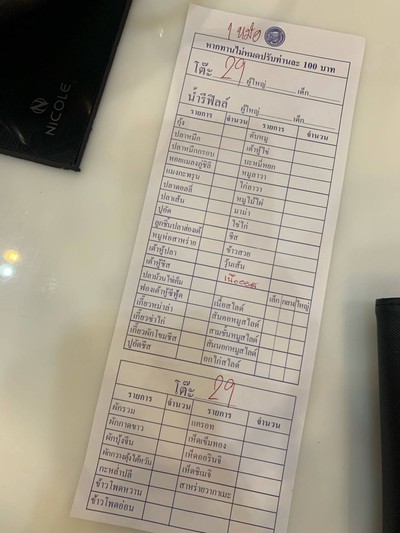 1 หม้อ
หากทานไม่หมดปรับท่านละ 100 บาท
โต๊ะ 29 ผู้ใหญ่ เด็ก
น้ำรีฟิลล์ ผู้ใหญ่ เด็ก
รายการ จำนวน รายการ จำนวน
กุ้ง ตับหมู
ปลาหมึก เต้าหู้ไข่
ปลาหมึกกรอบ บะหมี่หยก
หอยแมลงภู่ชิลี หมูลาวา
แมงกะพรุน ไก่ลาวา
ปลาดอลลี่ หมูไม้ไผ่
ปลาเส้น มาม่า
ปูอัด ไข่ไก่
ลูกชิ้นปลาฮ่องเต้ ชีส
หมูห่อสาหร่าย ข้าวสวย
เต้าหู้ปลา วุ้นเส้น
เต้าหู้ชีส
ปลาม้วนไข่เค็ม เล็ก กลาง ใหญ่
ฟองเต้าหู้ซีฟู้ด เนื้อสไลด์
เกี๊ยวหม่าล่า สันคอหมูสไลด์
เกี๊ยวซ่าไก่ สามชั้นหมูสไลด์
เกี๊ยวผักโขมชีส สันนอกหมูสไลด์
ปูอัดชีส อกไก่สไลด์
โต๊ะ 29
รายการ จำนวน รายการ จำนวน
ผักรวม แครอท
ผักกาดขาว เห็ดเข็มทอง
ผักบุ้งจีน เห็ดออรินจิ
ผักกวางตุ้งไต้หวัน เห็ดชิเมจิ
กะหล่ำปลี สาหร่ายวากาเมะ
ข้าวโพดหวาน
ข้าวโพดอ่อน
NICOLE